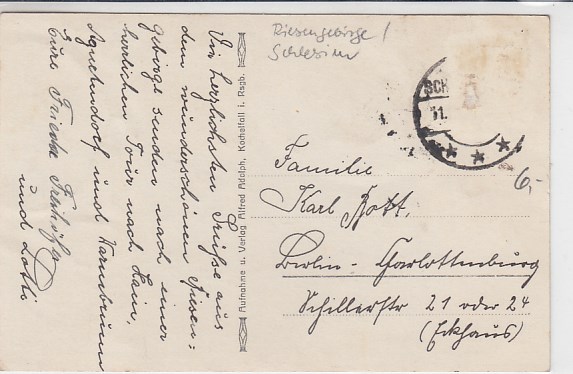 Riesengebirge /
Schlesien
Die herzlichsten Grüße aus
dem wunderschönen Riesen=
gebirge senden nach einer
herrlichen Tour nach Hain,
Agnetendorf und Warmbrunn
Eure Frieda
und Lotti
Aufnahme u. Verlag Alfred Adolph, Kochelfall i. Rsgb.
SCH
31.
Familie
Karl Bott,
Berlin-Charlottenburg
Schillerstr 21 oder 24
(Eckhaus)
6,-